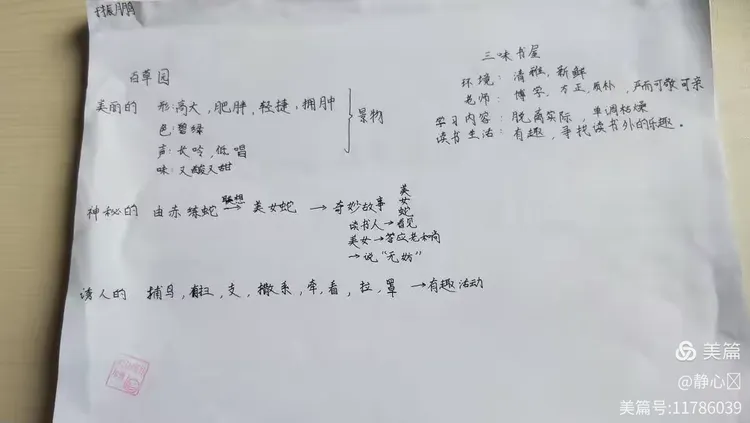 百草园
美丽的 形:高大,肥胖,轻捷,拥肿
色:碧绿
声:长吟,低唱
味:又酸又甜
景物
神秘的 由赤练蛇 联想→ 美女蛇 → 奇妙故事 美女蛇
读书人→看见
美女→答应老和尚
→说“无妨”
诱人的 捕鸟,扫,支,撒,系,牵,看,拉,罩 →有趣活动
三味书屋
环境:清雅,新鲜
老师:博学,方正,质朴,严而可敬可亲
学习内容:脱离实际,单调枯燥
读书生活:有趣,寻找读书外的乐趣。
美篇
@静心
美篇号:11786039